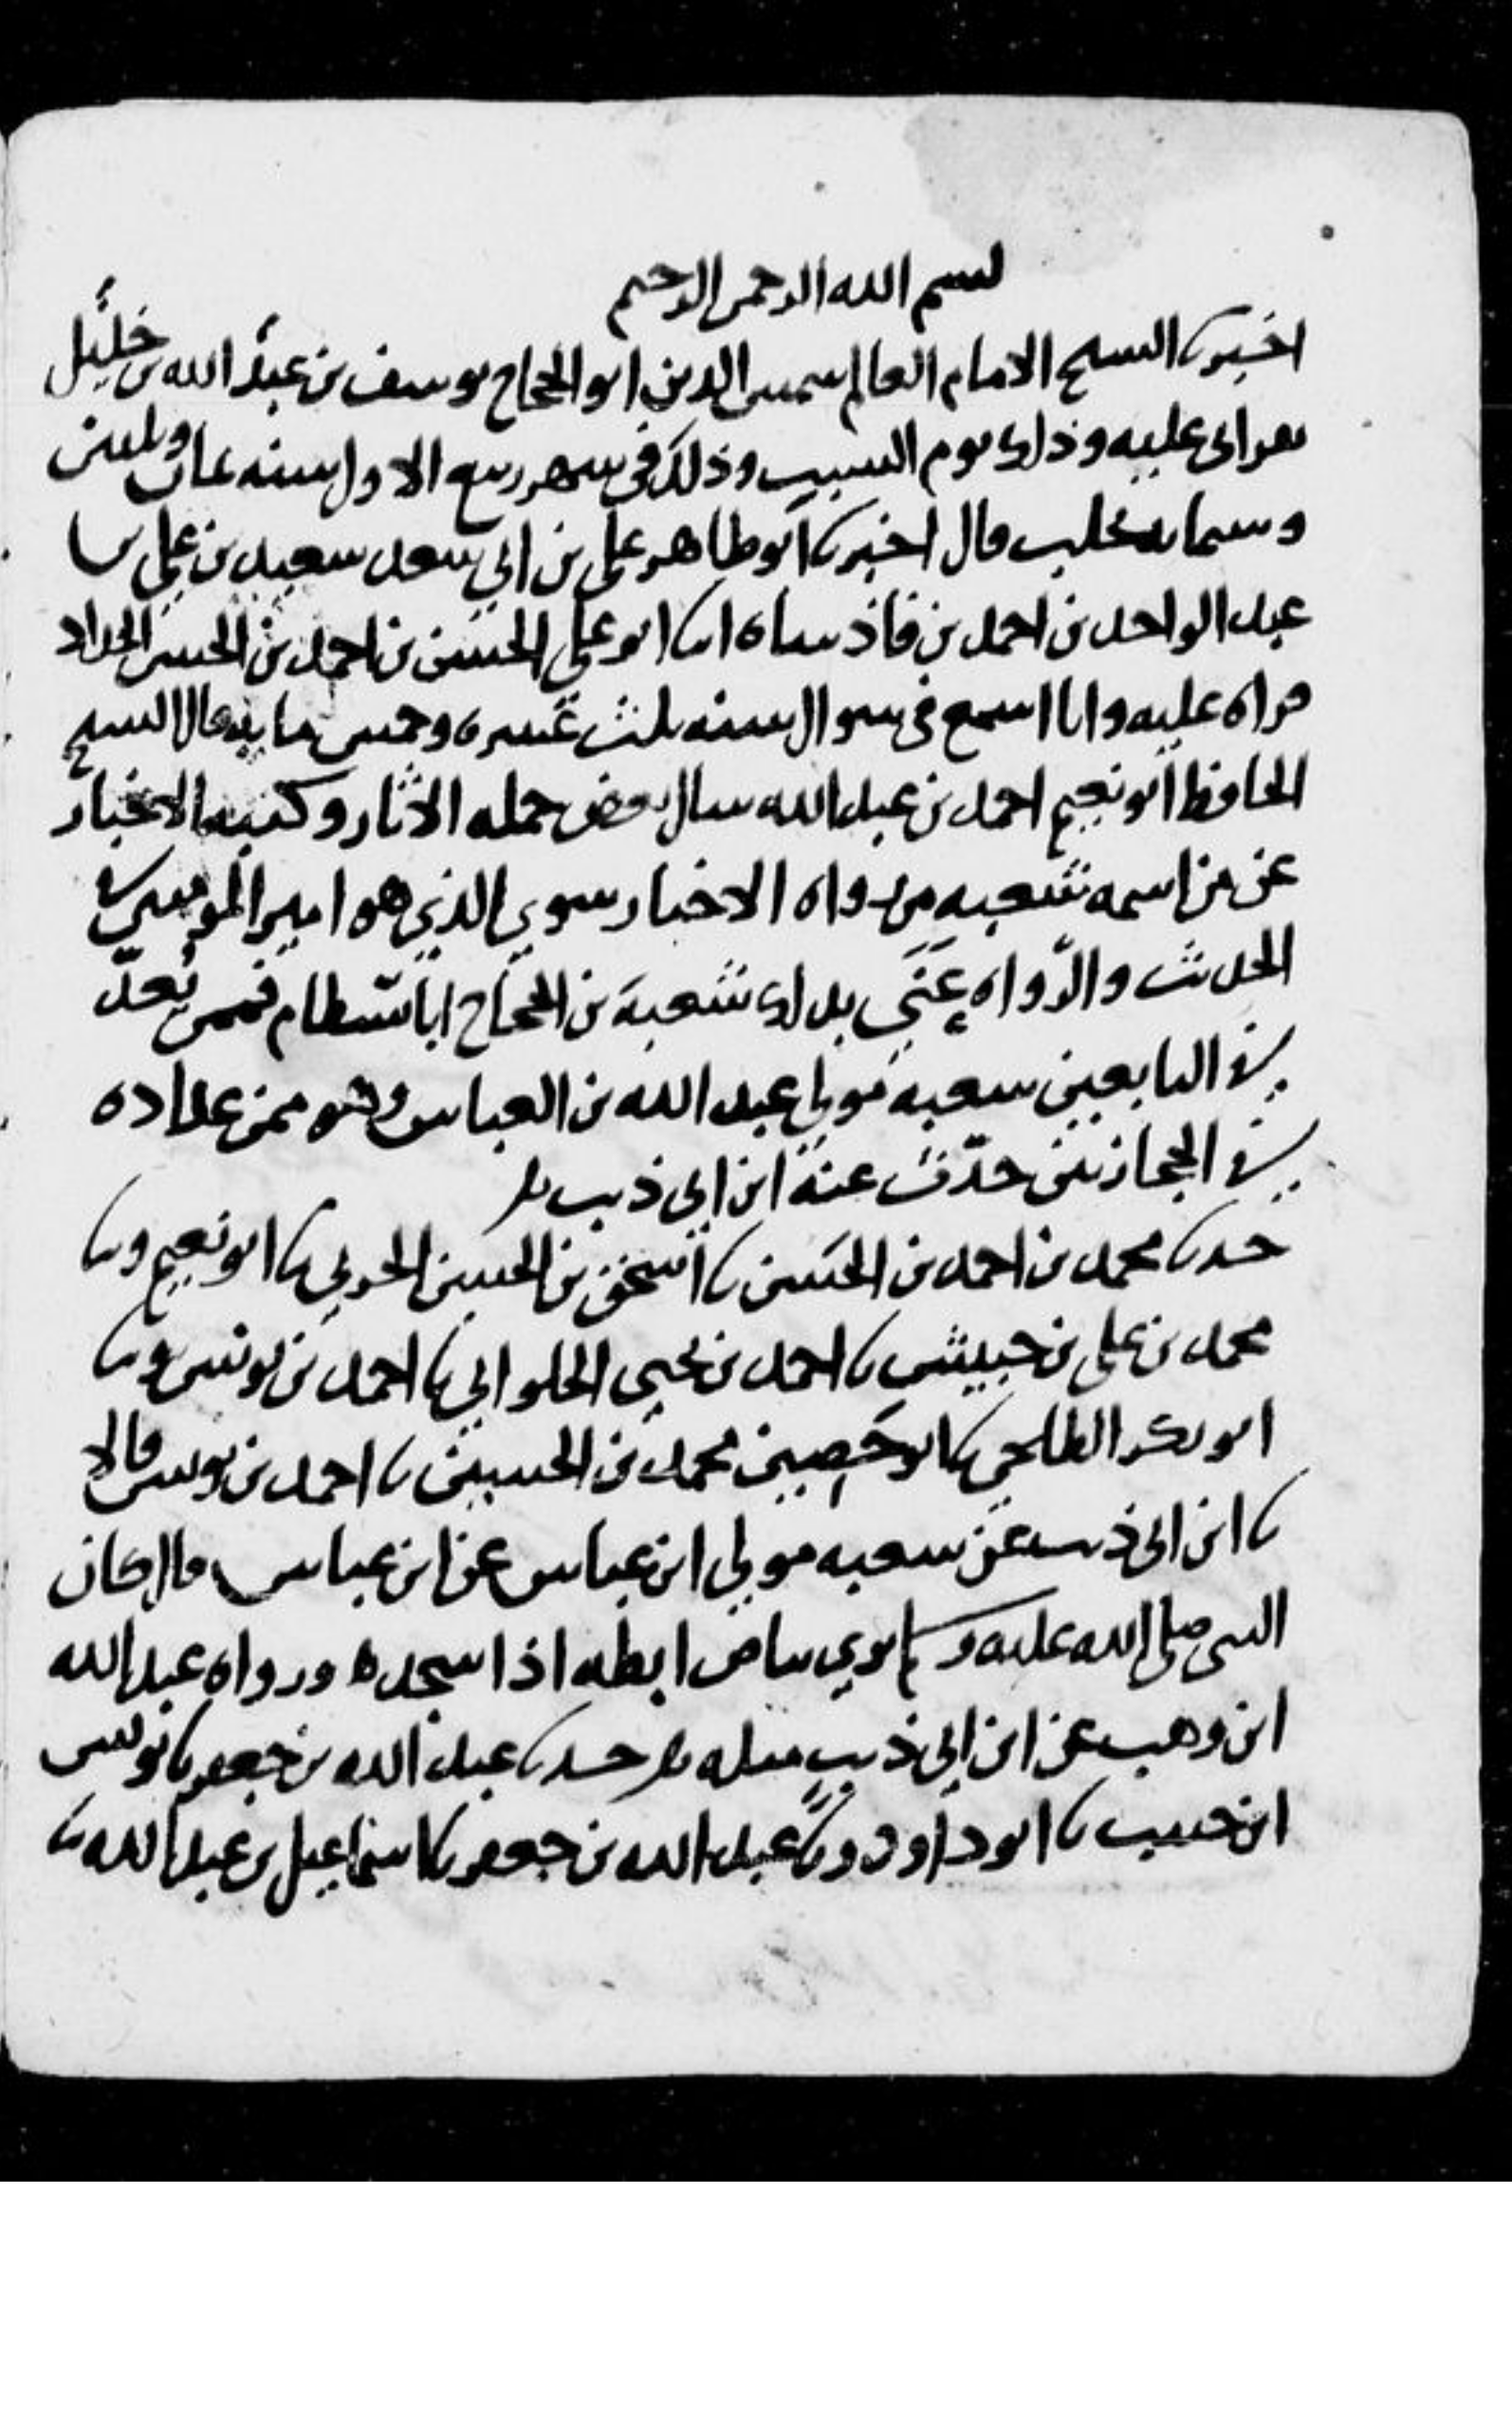 بسم الله الرحمن الرحيم
اخبرنا الشيخ الامام العالم شمس الدين ابو الحجاج يوسف بن عبد الله بن خليل
بقراتي عليه وذلك يوم السبت وذلك في شهر ربيع الاول سنه ثمان وثلثين
وستمايه بحلب قال اخبرنا ابو طاهر علي بن ابي سعد سعيد بن علي بن
عبد الواحد بن احمد بن فاذشاه انا ابو علي الحسن بن احمد بن الحسن الحداد
قراه عليه وانا اسمع في شوال سنه ثلث عشره وخمس مايه قال الشيخ
الحافظ ابو نعيم احمد بن عبد الله سال بعض حمله الاثار وكتبه الاخبار
عن من اسمه شعبه من رواه الاخبار سوي الذي هو امير المومنين في
الحديث والرواه عني بذلك شعبة بن الحجاج ابا بسطام فممن يعد
في التابعين شعبه مولي عبد الله بن العباس وهو ممن عداده
في الحجازيين حدث عنه ابن ابي ذيب
حدثنا محمد بن احمد بن الحسن نا اسحق بن الحسن الحربي نا ابو نعيم ونا
محمد بن علي بن حبيش نا احمد بن يحيى الحلواني نا احمد بن يونس ونا
ابو بكر الطلحي نا ابو حصين محمد بن الحسين نا احمد بن يونس قالا
نا ابن ابي ذيب عن شعبه مولي ابن عباس عن ابن عباس قال كان
النبي صلى الله عليه وسلم يري بياض ابطه اذا سجد ورواه عبد الله
ابن وهب عن ابن ابي ذيب مثله حدثنا عبد الله بن جعفر نا يونس
ابن حبيب نا ابو داود ونا عبد الله بن جعفر نا اسماعيل بن عبد الله نا